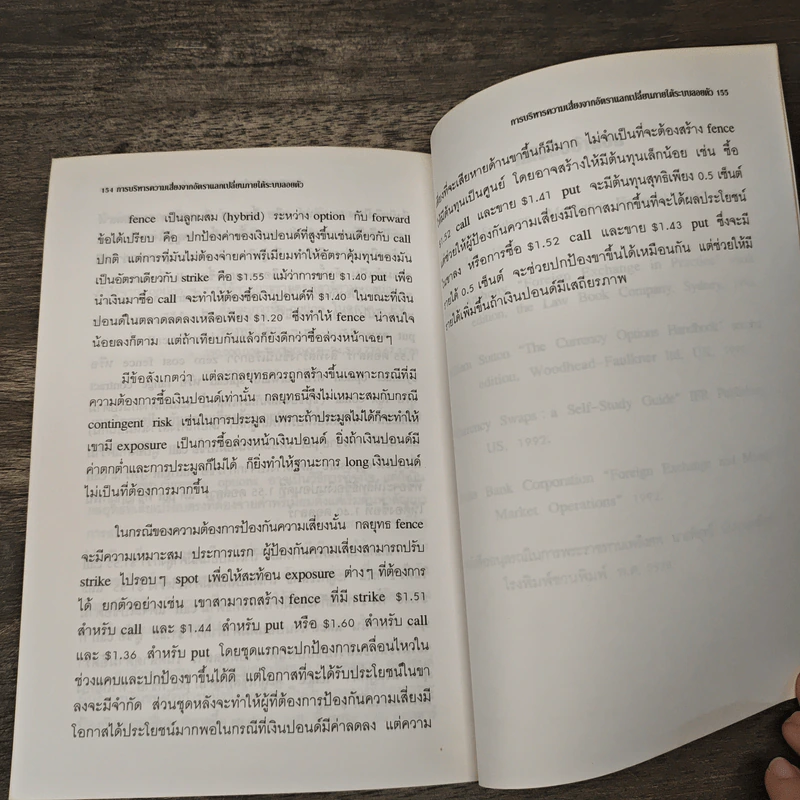 154 การบริหารความเสี่ยงจากอัตราแลกเปลี่ยนภายใต้ระบบลอยตัว
fence เป็นลูกผสม (hybrid) ระหว่าง option กับ forward
ข้อได้เปรียบ คือ ปกป้องค่าของเงินปอนด์ที่สูงขึ้นเช่นเดียวกับ call
ปกติ แต่การที่มันไม่ต้องจ่ายค่าพรีเมียมทำให้อัตราคุ้มทุนของมัน
เป็นอัตราเดียวกับ strike คือ $1.55 แม้ว่าการขาย $1.40 put เพื่อ
นำเงินมาซื้อ call จะทำให้ต้องซื้อเงินปอนด์ที่ $1.40 ในขณะที่เงิน
ปอนด์ในตลาดลดลงเหลือเพียง $1.20 ซึ่งทำให้ fence น่าสนใจ
น้อยลงก็ตาม แต่ถ้าเทียบกันแล้วก็ยังดีกว่าซื้อล่วงหน้าเฉยๆ
มีข้อสังเกตว่า แต่ละกลยุทธควรถูกสร้างขึ้นเฉพาะกรณีที่มี
ความต้องการซื้อเงินปอนด์เท่านั้น กลยุทธนี้จึงไม่เหมาะสมกับกรณี
contingent risk เช่นในการประมูล เพราะถ้าประมูลไม่ได้ก็จะทำให้
เขามี exposure เป็นการซื้อล่วงหน้าเงินปอนด์ ยิ่งถ้าเงินปอนด์มี
ค่าตกต่ำและการประมูลก็ไม่ได้ ก็ยิ่งทำให้ฐานะการ long เงินปอนด์
ไม่เป็นที่ต้องการมากขึ้น
ในกรณีของความต้องการป้องกันความเสี่ยงนั้น กลยุทธ fence
จะมีความเหมาะสม ประการแรก ผู้ป้องกันความเสี่ยงสามารถปรับ
strike ไปรอบๆ spot เพื่อให้สะท้อน exposure ต่างๆ ที่ต้องการ
ได้ ยกตัวอย่างเช่น เขาสามารถสร้าง fence ที่มี strike $1.51
สำหรับ call และ $1.44 สำหรับ put หรือ $1.60 สำหรับ call
และ $1.36 สำหรับ put โดยชุดแรกจะปกป้องการเคลื่อนไหวใน
ช่วงแคบและปกป้องขาขึ้นได้ดี แต่โอกาสที่จะได้รับประโยชน์ในขา
ลงจะมีจำกัด ส่วนชุดหลังจะทำให้ผู้ที่ต้องการป้องกันความเสี่ยงมี
โอกาสได้ประโยชน์มากพอในกรณีที่เงินปอนด์มีค่าลดลง แต่ความ
การบริหารความเสี่ยงจากอัตราแลกเปลี่ยนภายใต้ระบบลอยตัว 155
ที่จะเสียหายด้านขาขึ้นก็มีมาก ไม่จำเป็นที่จะต้องสร้าง fence
มีต้นทุนเป็นศูนย์ โดยอาจสร้างให้มีต้นทุนเล็กน้อย เช่น ซื้อ
.52 call และขาย $1.41 put จะมีต้นทุนสุทธิเพียง 0.5 เซ็นต์
ช่วยให้ผู้ป้องกันความเสี่ยงมีโอกาสมากขึ้นที่จะได้ผลประโยชน์
ขาลง หรือการซื้อ $1.52 call และขาย $1.43 put ซึ่งจะมี
รายได้ 0.5 เซ็นต์ จะช่วยปกป้องขาขึ้นได้เหมือนกัน แต่ช่วยให้มี
รายได้เพิ่มขึ้นถ้าเงินปอนด์มีเสถียรภาพ